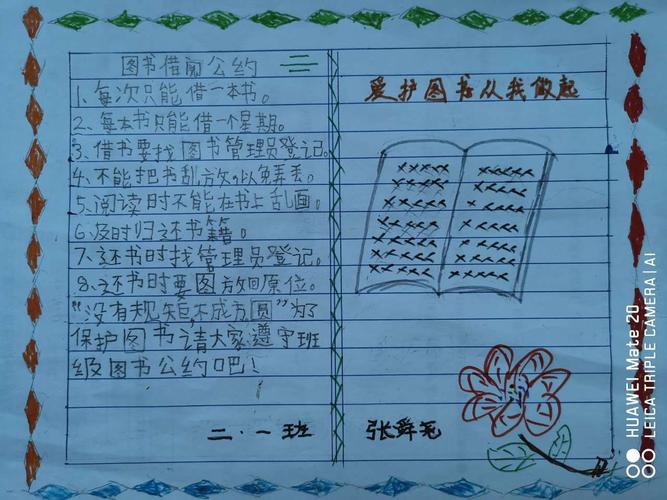 图书借阅公约
1、每次只能借一本书。
2、每本书只能借一个星期。
3、借书要找图书管理员登记。
4、不能把书乱放,以免丢丢。
5、阅读时不能在书上乱画。
6、及时归还书籍。
7、还书时找管理员登记。
8、还书时要图放回原位。
“没有规矩不成方圆”为了
保护图书请大家遵守班
级图书公约吧!
二·一班
爱护图书从我做起
张舜尧
HUAWEI Mate 20
LEICA TRIPLE CAMERA | AI